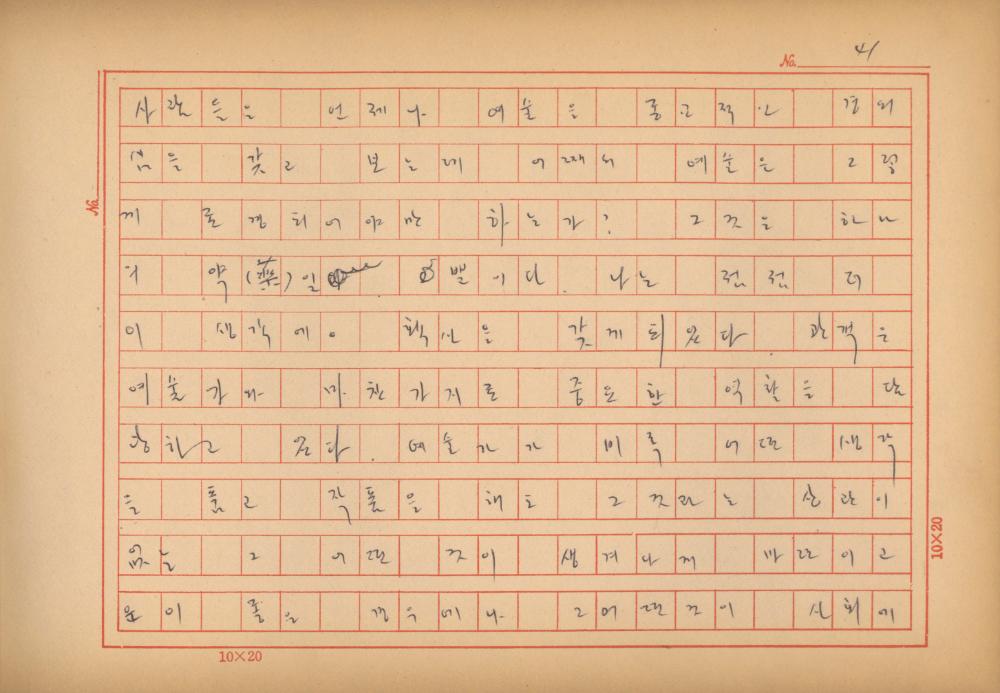 No. 41
사람들은 언제나 예술을 종교적인 경외
심을 갖고 보는데 어째서 예술은 그렇
게 존경되어야만 하는가? 그것은 하나
의 약(藥)일 뿐이다. 나는 점점 더
이 생각에 확신을 갖게 되었다. 관객은
예술가와 마찬가지로 중요한 역할을 담
당하고 있다. 예술가가 비록 어떤 생각
을 품고 작품을 해도 그것과는 상관이
없는 그 어떤 것이 생겨나게 마련이고
운이 좋은 경우에나 그 어떤것이 사회에
No.
10×20
10×20